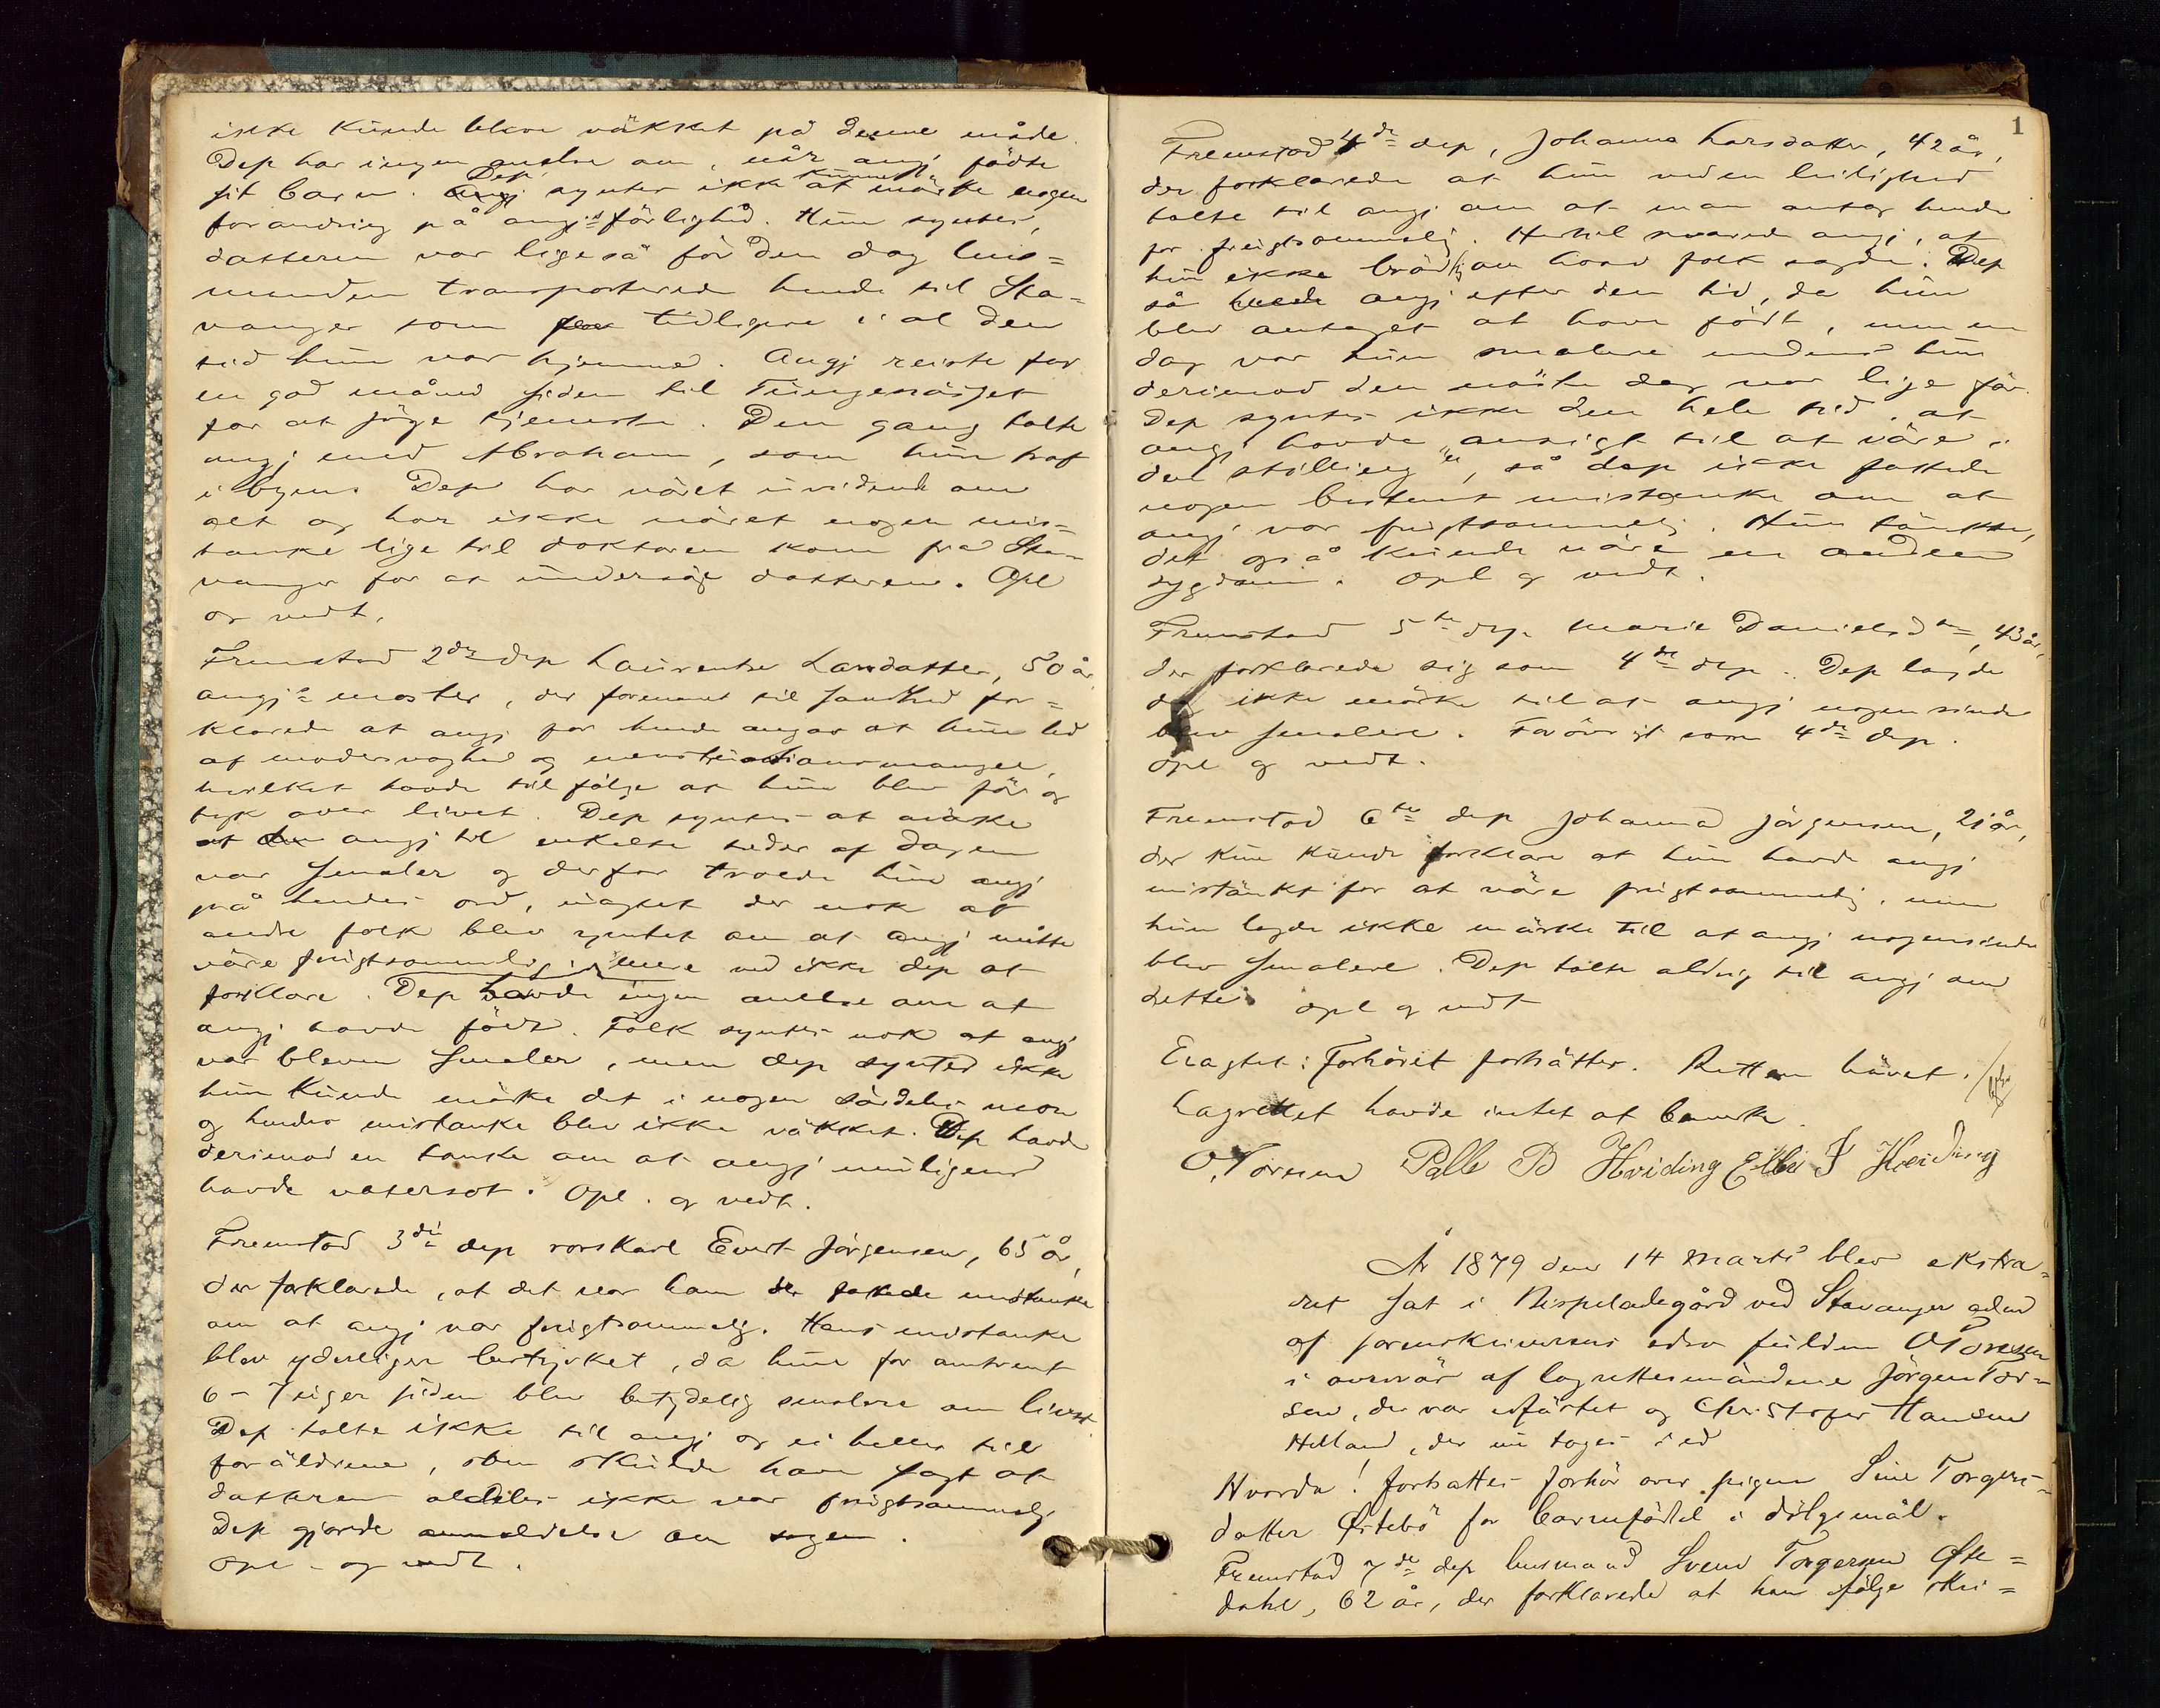 ikke kunde bleve väkket på denne måde.
Dep har ingen anelse om, når angj födte
sit barn. Dep syntes ikke at kunne märke nogen
forandring på angjs förlighed. Hun syntes,
datteren var ligeså för den dag lens=
manden transporterede hende til Sta=
vanger som tidligere i al den
tid hun var hjemme. Angj reiste for
en god måned siden til Tungenäset
for at söge tjeneste. Den gang talte
angj med Abraham, som hun traf
i byen. Dep har väret uvidende om
alt og har ikke näret nogen mis=
tanke lige til doktoren kom fra Sta=
vanger for at undersöge datteren. Opl
og vedt.
Fremstod 2den dep Laurentse Larsdatter, 50 år,
angjs moster, der formanet til sandhed for=
klarede at angj for hende angav at hun led
af modersvaghed og menstruationsmangel,
hvilket havde til fölge at hun blev för og
tyk over livet. Dep syntes at märke
at angj til enkelte tider af dagen
var smaler og derfor troede hun angj
på hendes ord, uagtet der nok af
andre folk blev ymtet om at angj måtte
väre frugtsommelig; mere ved ikke dep at
forklare. Dep havde ingen anelse om at
angj havde födt. Folk syntes nok at angj
var bleven smaler, men dep syntes ikke
hun kunde märke det i nogen särdeles mon
og hendes mistanke blev ikke väkket. Dep havde
derimod en tanke om at angj muligens
havde vatersot. Opl. og vedt.
Fremstod 3die dep rorskarl Evert Jörgensen, 65 år,
der forklarede, at det var ham der fattede mistanke
om at angj var frugtsommelig. Hans mistanke
blev yderligere bestyrket, da hun for omtrent
6 - 7 uger siden blev betydelig smalere om livet.
Dep talte ikke til angj og ei heller til
foräldrene, som skulde have sagt at
datteren aldeles ikke var frugtsommelig
Dep gjorde anmeldelse om sagen.
Opl - og vedt.
1
Fremstod 4de dep, Johanna Larsdatter, 42 år,
der forklarede at hun ved en leilighed
talte til angj om at man antog hende
for frugtsommelig. Hertil svarede angj, at
hun ikke bröd sig om hvad folk sagde. Dep
så angj efter den tid, da hun
blev antaget at have födt, men en
dag var hun smalere medens hun
derimod den näste dag var lige för.
Dep syntes ikke den hele tid at
angj havde "ansigt til at väre i
den stilling", så dep ikke fattede
nogen bestemt mistanke om at
angj var frugtsommelig. Hun tänkte,
det også kunde väre en anden
sygdom. Opl og vedt.
Fremstod 5te dep Marie Danielsdtr, 43 år,
der forklarede sig som 4de dep. Dep lagde
dog ikke märke til at angj nogensinde
blev smalere. Forövrigt som 4de dep.
Opl og vedt.
Fremstod 6te dep Johanna Jörgensen, 21 år,
der kun kunde forklare at hun havde angj
mistänkt for at väre frugtsommelig, men
hun lagde ikke märke til at angj nogensinde
blev smalere. Dep talte aldrig til angj om
dette. Opl og vedt
Eragtet: Forhöret fortsätter. Retten hävet.
Lagrettet havde intet at bemerke.
O. Torsen Palle B Hviding Elli J Hviding
År 1879 den 14 Marts blev ekstra=
ret sat i Bispeladegård ved Stavanger
af sorenskriverens edsv fuldm O Torsen
i overvär af lagrettesmändene Jörgen Tor=
sen, der var edfästet og Christofer Hansen
Helland, der nu toges i ed
Hvorda! fortsattes forhör over pigen Sine Torgers=
datter Östebö for barnefödsel i dölgsmål.
Fremstod 7de dep husmand Svend Torgersen Ofte=
dahl, 62 år, der forklarede at han ifölge skri=